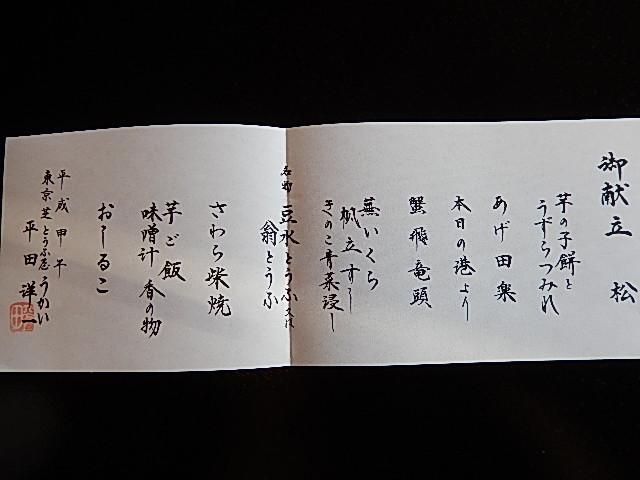 御献立 松
芋の子餅と
うずらつみれ
あげ田楽
本日の港より
蟹飛竜頭
蕪いくら
帆立すし
きのこ青菜浸し
名物 豆水とうふ 又は
翁とうふ
さわら柴焼
芋ご飯
味噌汁 香の物
おしるこ
平成甲午
東京芝とうふ屋うかい
平田洋一